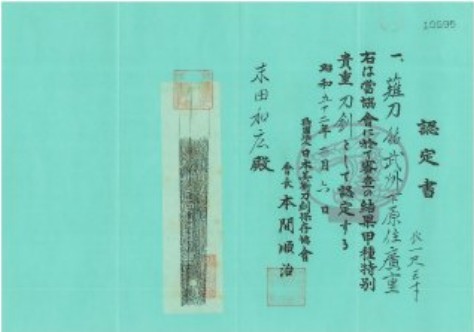 10595
認定書
一、薙刀 銘 武州下原住廣重
右は當協會に於て審査の結果甲種特別
貴重刀剣として認定する
昭和 年二月六日
財團法人日本美術刀剣保存協會
會長 本間順治
殿